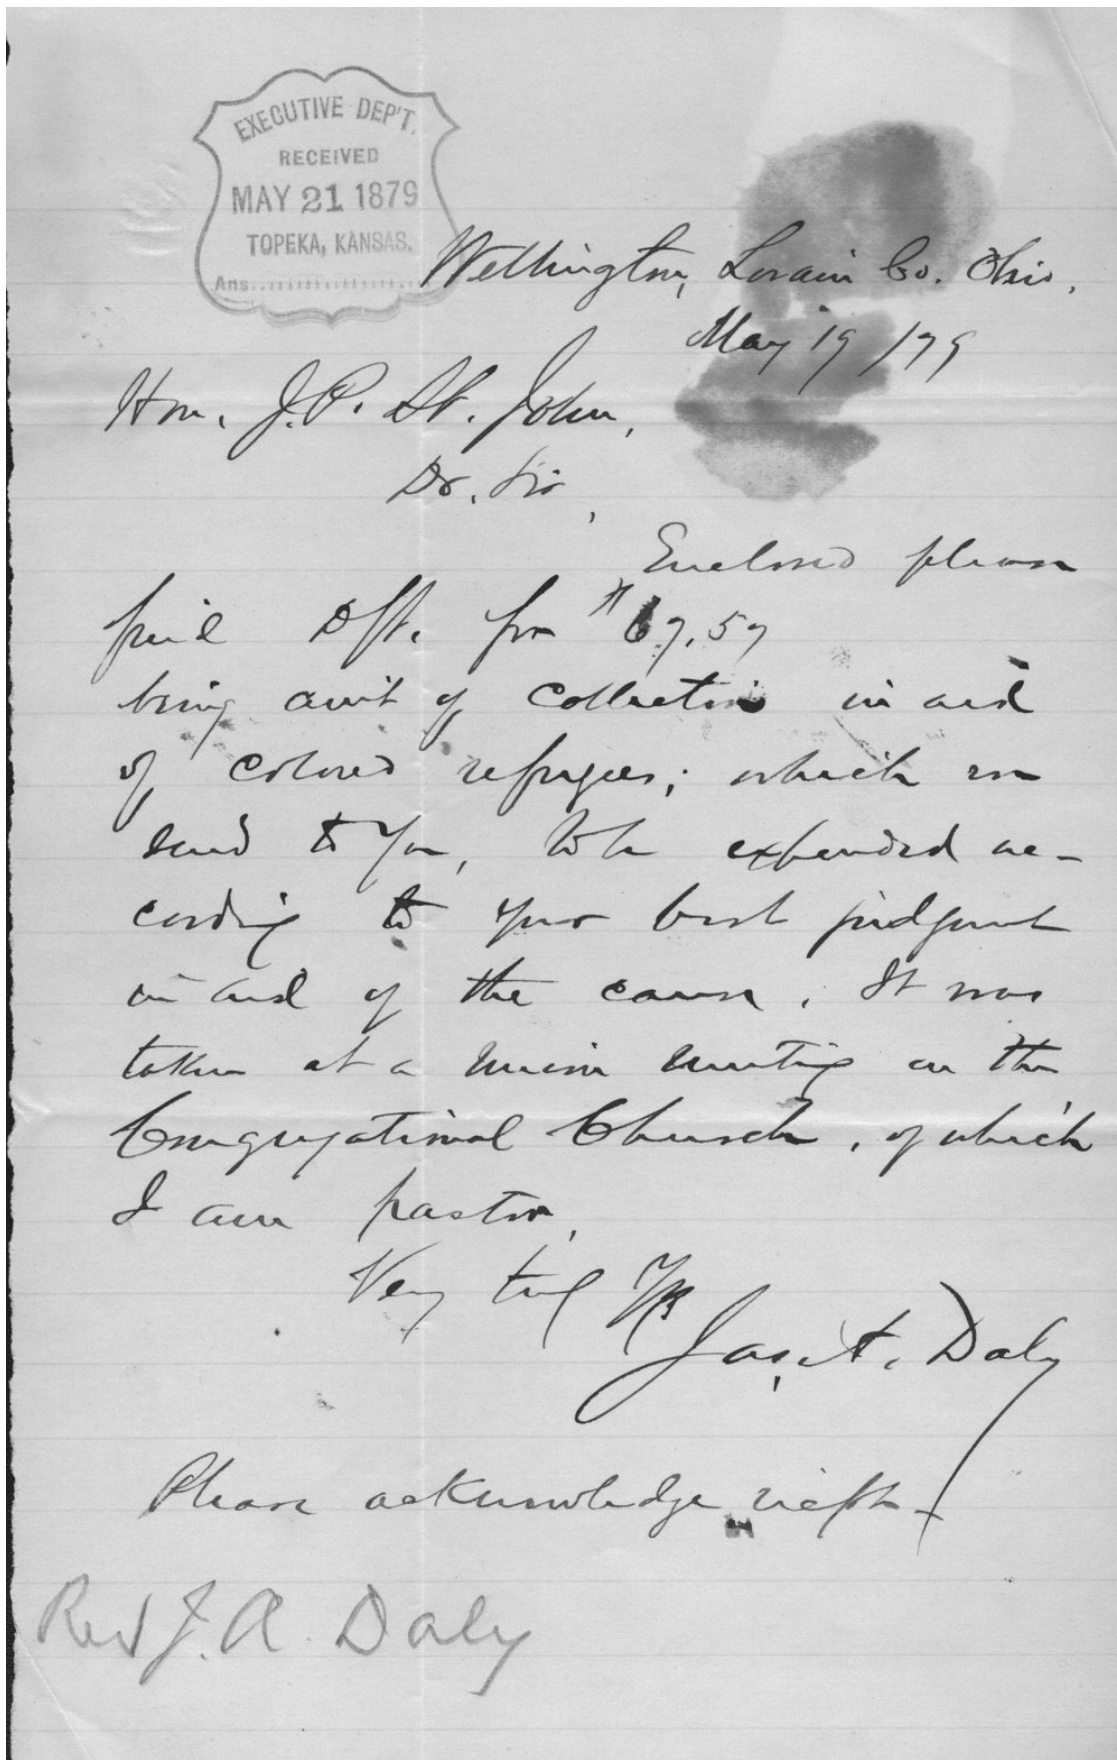 EXECUTIVE DEP'T.
RECEIVED
MAY 21 1879
TOPEKA, KANSAS.
Ans.
Wellington, Lorain Co. Ohio,
May 19 / 79
Hon. J. P. St. John,
Dr. Sir,
Enclosed please
find Dft. for $67.57
being amt of collection in aid
of colored refugees; which we
send to you, to be expended ac-
cording to your best judgment
in aid of the cause. It was
taken at a union meeting in the
Congregational Church, of which
I am pastor,
Very truly Yrs
Jas. A. Daly
Please acknowledge rcpt.
Rev J. A. Daly